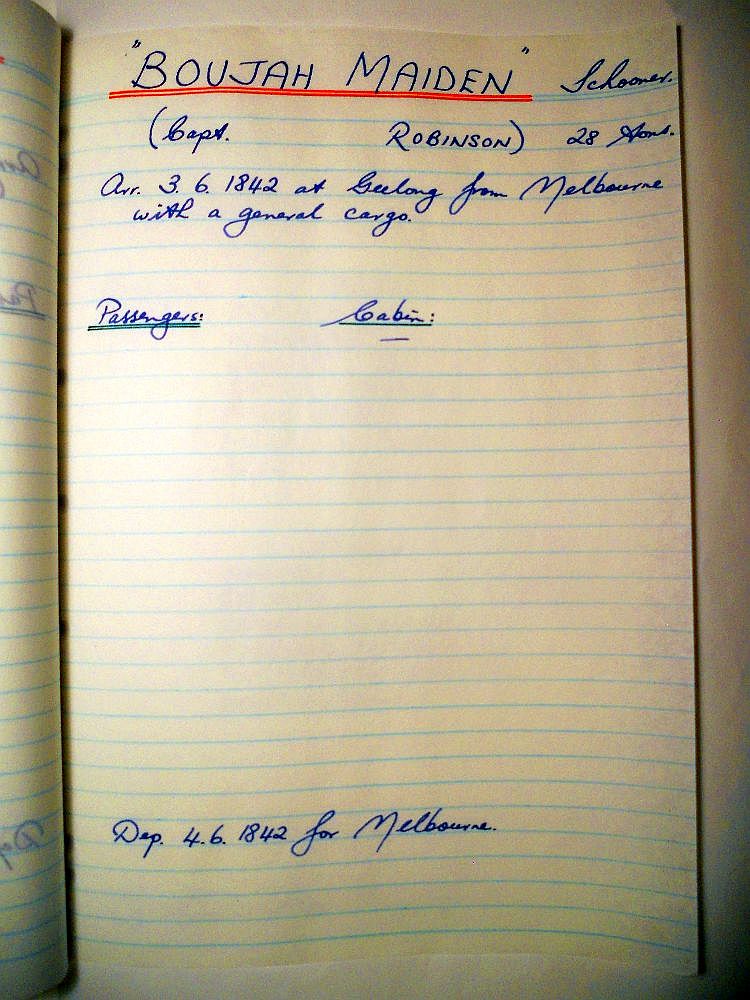 "BOUJAH MAIDEN" Schooner.
(Capt. ROBINSON) 28 tons.
Arr. 3.6.1842 at Geelong from Melbourne
with a general cargo.
Passengers: Cabin:
—
Dep. 4.6.1842 for Melbourne.